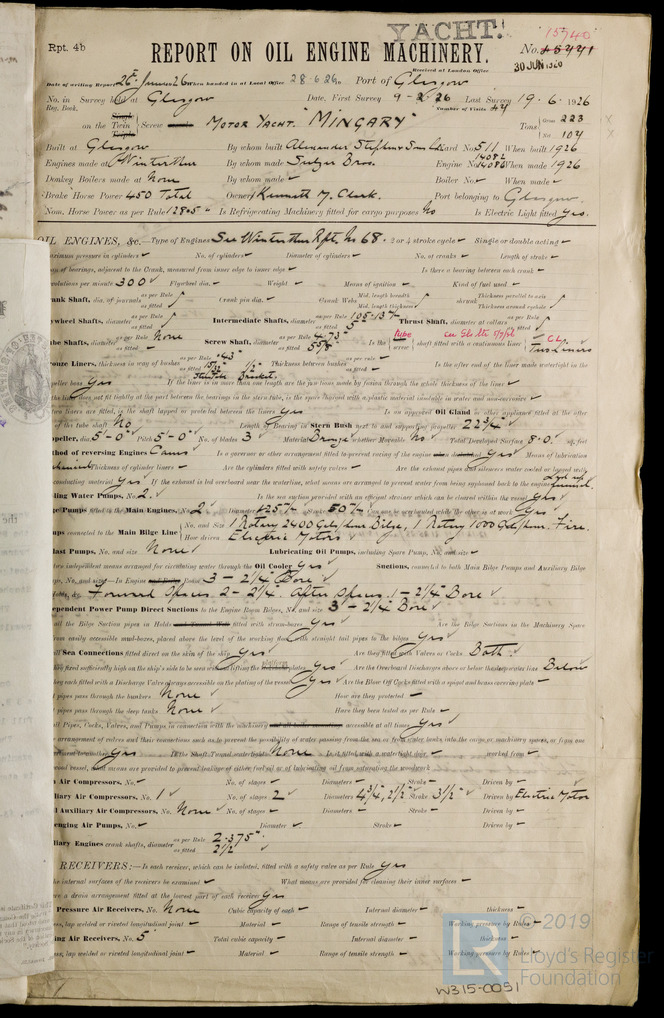 YACHT.
15740
Rpt. 4b
REPORT ON OIL ENGINE MACHINERY.
No. 45441
Received at London Office 30 JUN 1926
Date of writing Report 26th June 1926 When handed in at Local Office 28.6.26. Port of Glasgow
No. in Survey held at Glasgow Date, First Survey 9-2-26 Last Survey 19.6.1926
Reg. Book. Number of Visits 44
on the Single Twin Triple Screw MOTOR YACHT "MINGARY" Tons Gross 223 Net 104
Built at Glasgow By whom built Alexander Stephen & Sons Ld Yard No. 511 When built 1926
Engines made at Winterthur By whom made Sulzer Bros. Engine No. 14082 14086 When made 1926
Donkey Boilers made at None By whom made Boiler No. When made
Brake Horse Power 450 Total Owners Kenneth M. Clark. Port belonging to Glasgow.
Nom. Horse Power as per Rule 128.5 Is Refrigerating Machinery fitted for cargo purposes No Is Electric Light fitted Yes.
OIL ENGINES, &c.—Type of Engines See Winterthur Rpt. No 68. 2 or 4 stroke cycle Single or double acting
Maximum pressure in cylinders No. of cylinders Diameter of cylinders No. of cranks Length of stroke
of bearings, adjacent to the Crank, measured from inner edge to inner edge Is there a bearing between each crank
Revolutions per minute 300 Flywheel dia. Weight Means of ignition Kind of fuel used
Crank Shaft, dia. of journals as per Rule as fitted Crank pin dia. Crank Webs Mid. length breadth Mid. length thickness shrunk Thickness parallel to axis Thickness around eye
Flywheel Shafts, diameter as per Rule as fitted Intermediate Shafts, diameter as per Rule as fitted 5" Thrust Shaft, diameter at collars as per Rule as fitted
Tube Shafts, diameter as per Rule None as fitted Screw Shaft, diameter as per Rule as fitted Is the tube screw shaft fitted with a continuous liner
Bronze Liners, thickness in way of bushes as per Rule .43" as fitted Thickness between bushes as per rule as fitted Is the after end of the liner made watertight in the
propeller boss Yes If the liner is in more than one length are the junctions made by fusion through the whole thickness of the liner
If the liner does not fit tightly at the part between the bearings in the stern tube, is the space charged with a plastic material insoluble in water and non-corrosive
If two liners are fitted, is the shaft lapped or protected between the liners Yes Is an approved Oil Gland or other appliance fitted at the after
end of the tube shaft No Length of Bearing in Stern Bush next to and supporting propeller 22 3/4"
Propeller, dia. 5'-0" Pitch 5'-0" No. of blades 3 Material Bronze whether Moveable No Total Developed Surface 8.0 sq. feet
Method of reversing Engines Cams Is a governor or other arrangement fitted to prevent racing of the engine Yes Means of lubrication
Thickness of cylinder liners Are the cylinders fitted with safety valves Are the exhaust pipes and silencers water cooled or lagged with
conducting material Yes If the exhaust is led overboard near the waterline, what means are arranged to prevent water from being syphoned back to the engine Led up funnel.
Cooling Water Pumps, No. 2. Is the sea suction provided with an efficient strainer which can be cleared within the vessel Yes
Bilge Pumps fitted to the Main Engines, No. 2 Diameter Stroke Can one be overhauled while the other is at work Yes
Pumps connected to the Main Bilge Line No. and Size 1 Rotary 2400 Gals/hour Bilge, 1 Rotary 1000 Gals/hour. Fire.
How driven Electric Motors
Ballast Pumps, No. and size None Lubricating Oil Pumps, including Spare Pump, No. and size
Are two independent means arranged for circulating water through the Oil Cooler Yes Suctions, connected to both Main Bilge Pumps and Auxiliary Bilge
Pumps, No. and size:—In Engine Room 3 - 2 1/4" Bore
In Holds, &c. Forward Space. 2 - 2 1/4". After Space. 1 - 2 1/4" Bore
Independent Power Pump Direct Suctions to the Engine Room Bilges, No. and size 3 - 2 1/4" Bore
Are all the Bilge Suction pipes in Holds and Tunnel Well fitted with strum-boxes Yes Are the Bilge Suctions in the Machinery Space
led from easily accessible mud-boxes, placed above the level of the working floor, with straight tail pipes to the bilges Yes
Are all Sea Connections fitted direct on the skin of the ship Yes Are they fitted with Valves or Cocks Both.
Are they fixed sufficiently high on the ship's side to be seen without lifting the platform plates Yes Are the Overboard Discharges above or below the deep water line Below
Are they each fitted with a Discharge Valve always accessible on the plating of the vessel Yes Are the Blow Off Cocks fitted with a spigot and brass covering plate
What pipes pass through the bunkers None How are they protected
What pipes pass through the deep tanks None Have they been tested as per Rule
Are all Pipes, Cocks, Valves, and Pumps in connection with the machinery and all boiler mountings accessible at all times Yes
Is the arrangement of valves and their connections such as to prevent the possibility of water passing from the sea or from water tanks into the cargo or machinery spaces, or from one
compartment to another Yes Is the Shaft Tunnel watertight None Is it fitted with a watertight door worked from
If a wood vessel, what means are provided to prevent leakage of either fuel oil or of lubricating oil from saturating the woodwork
Main Air Compressors, No. No. of stages Diameters Stroke Driven by
Auxiliary Air Compressors, No. 1 No. of stages 2 Diameters 4 3/4", 2 1/2" Stroke 3 1/2" Driven by Electric Motor
Small Auxiliary Air Compressors, No. None No. of stages Diameters Stroke Driven by
Scavenging Air Pumps, No. Diameter Stroke Driven by
Auxiliary Engines crank shafts, diameter as per Rule 2.375" as fitted 2 1/2"
RECEIVERS:—Is each receiver, which can be isolated, fitted with a safety valve as per Rule Yes
Can the internal surfaces of the receivers be examined What means are provided for cleaning their inner surfaces
Is there a drain arrangement fitted at the lowest part of each receiver Yes
Pressure Air Receivers, No. None Cubic capacity of each Internal diameter thickness
Seamless, lap welded or riveted longitudinal joint Material Range of tensile strength Working pressure by Rules
Starting Air Receivers, No. 5 Total cubic capacity Internal diameter thickness
Seamless, lap welded or riveted longitudinal joint Material Range of tensile strength Working pressure by Rules
© 2019
LR
Lloyd's Register
Foundation
W315-0051